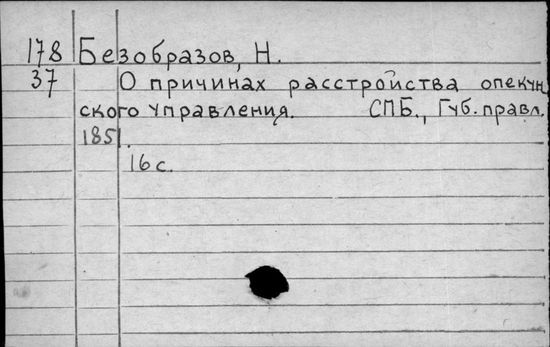 178 Безобразов, Н.
37 О причинах расстройства опекун
ского управления. СПБ., Губ. правл.
1851.
16 с.